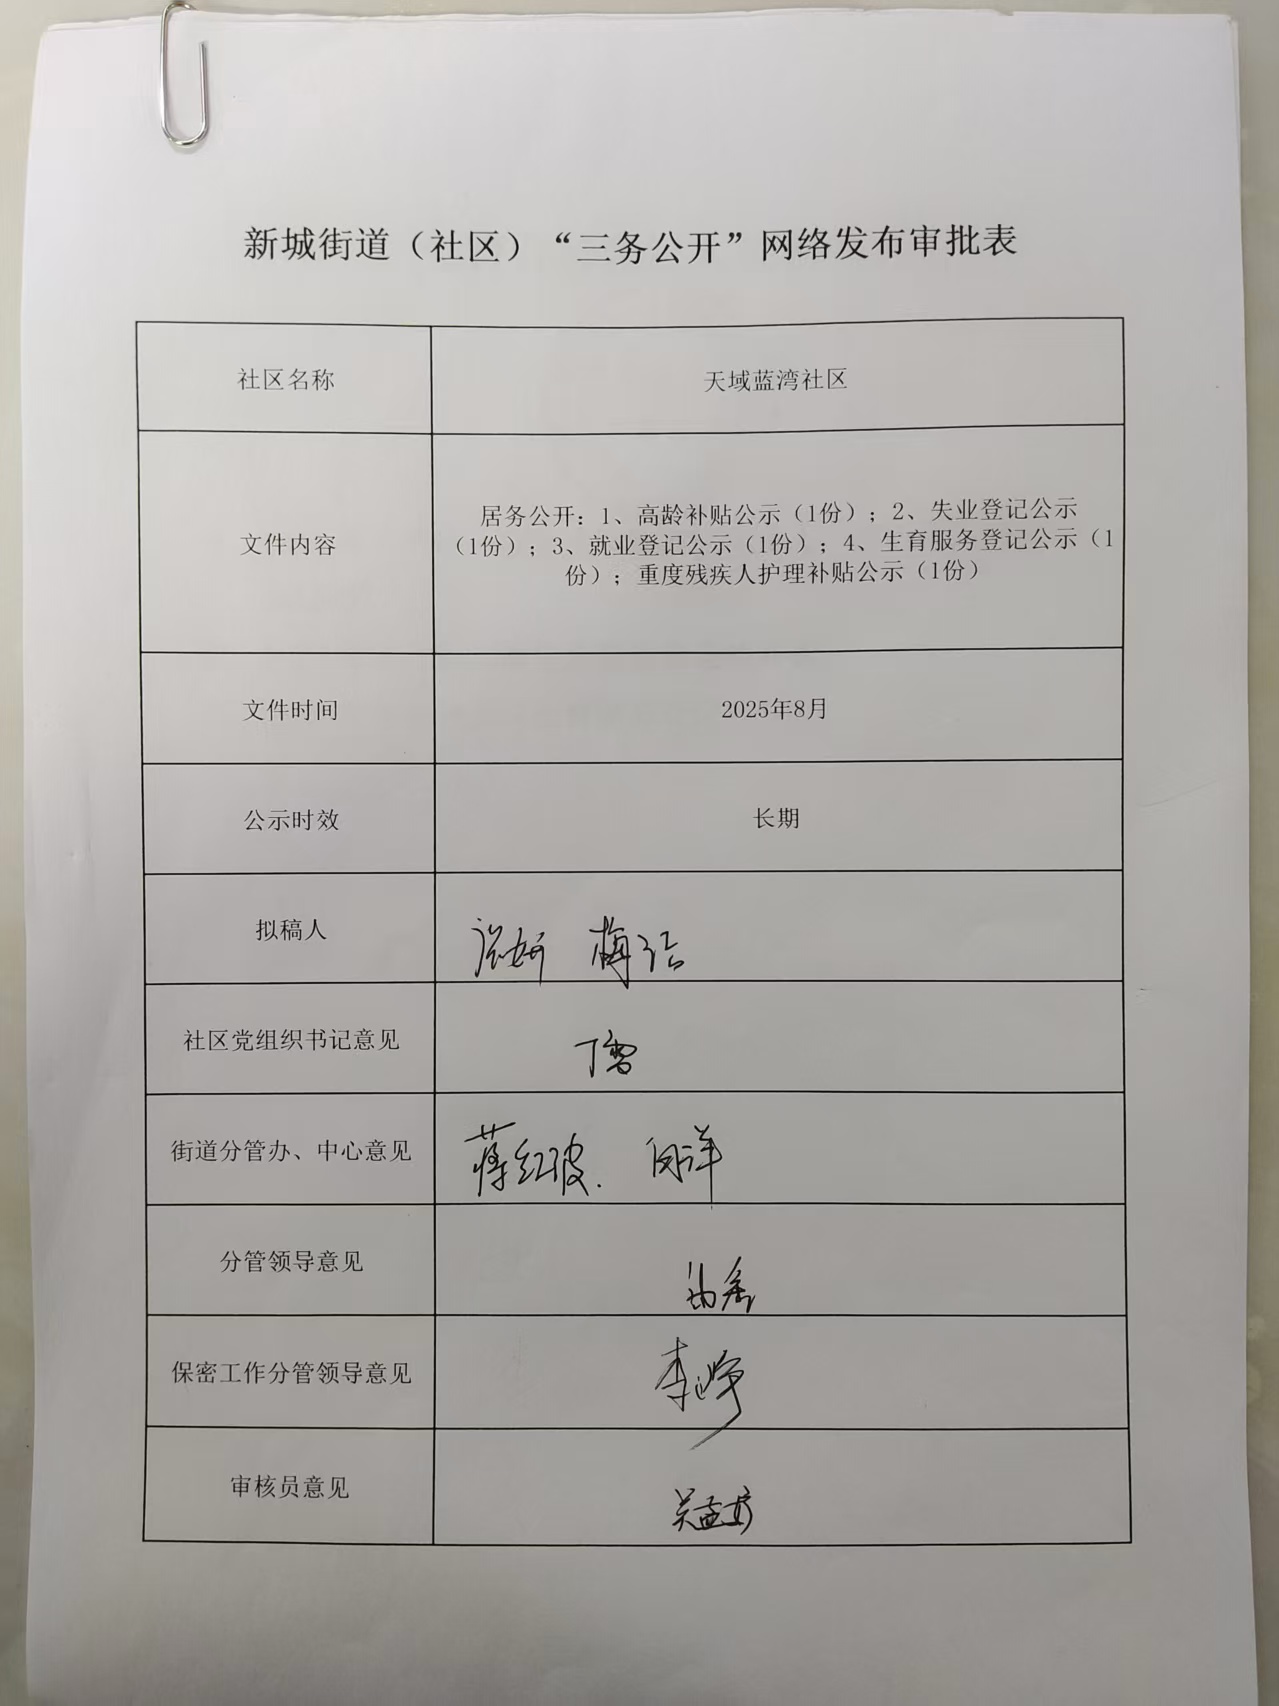 新城街道（社区）“三务公开”网络发布审批表
社区名称
天域蓝湾社区
文件内容
居务公开：1、高龄补贴公示（1份）；2、失业登记公示
（1份）；3、就业登记公示（1份）；4、生育服务登记公示（1
份）；重度残疾人护理补贴公示（1份）
文件时间
2025年8月
公示时效
长期
拟稿人
社区党组织书记意见
丁雪
街道分管办、中心意见
蒋红波
分管领导意见
保密工作分管领导意见
审核员意见